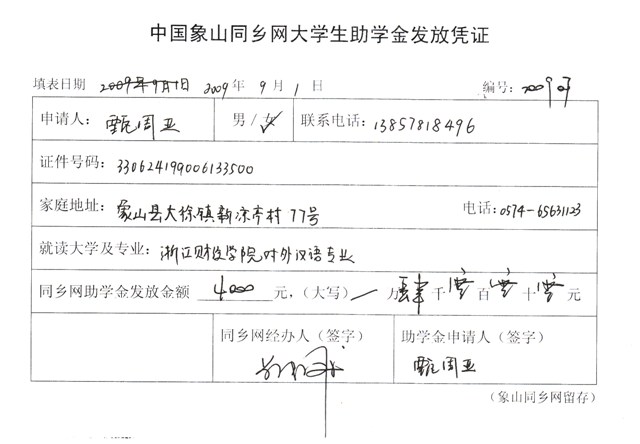 中国象山同乡网大学生助学金发放凭证
填表日期 2009年9月1日 2009年 9月 1日 编号:
申请人: 甄周亚 男/女✓ 联系电话: 13857818496
证件号码: 330624199006133500
家庭地址: 象山县大徐镇新凉亭村77号 电话: 0574-65631123
就读大学及专业: 浙江财经学院对外汉语专业
同乡网助学金发放金额 4000 元,(大写) 万 肆 千 零 百 零 十 零 元
同乡网经办人(签字) 助学金申请人(签字)
甄周亚
(象山同乡网留存)